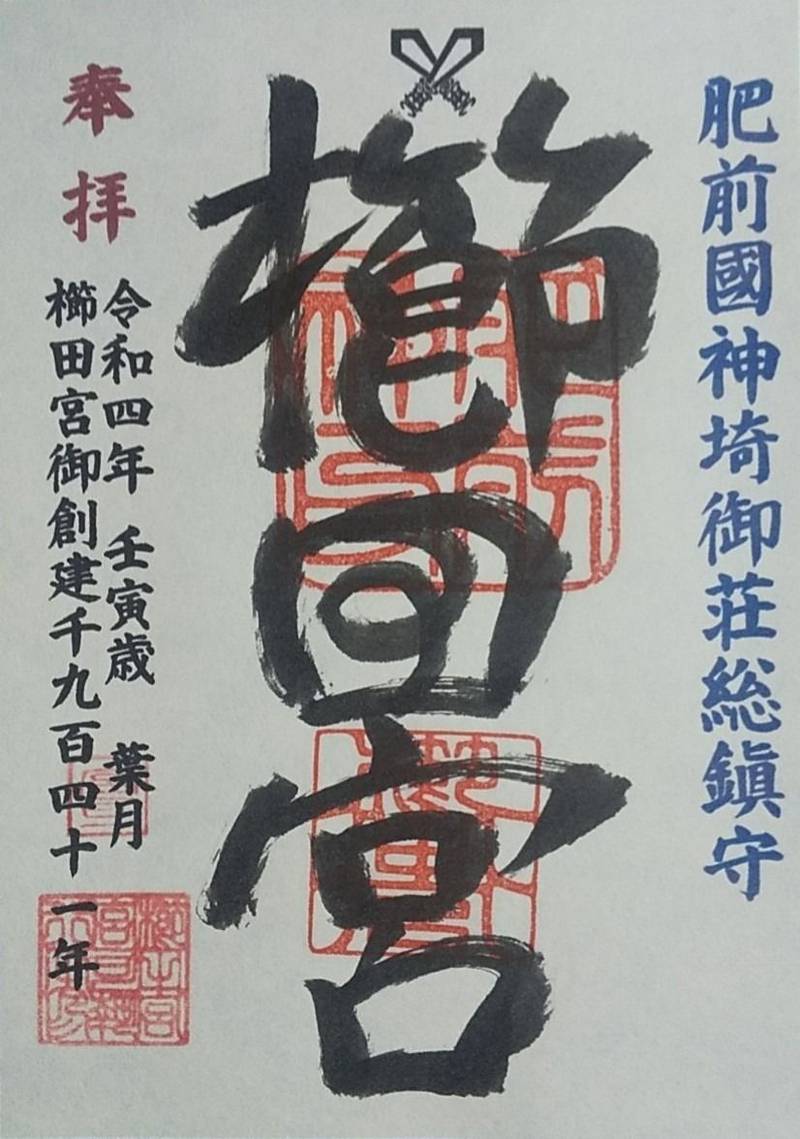 肥前國神埼御荘総鎮守
櫛田宮
奉拝
令和四年 壬寅歳 葉月
櫛田宮御創建千九百四十一年